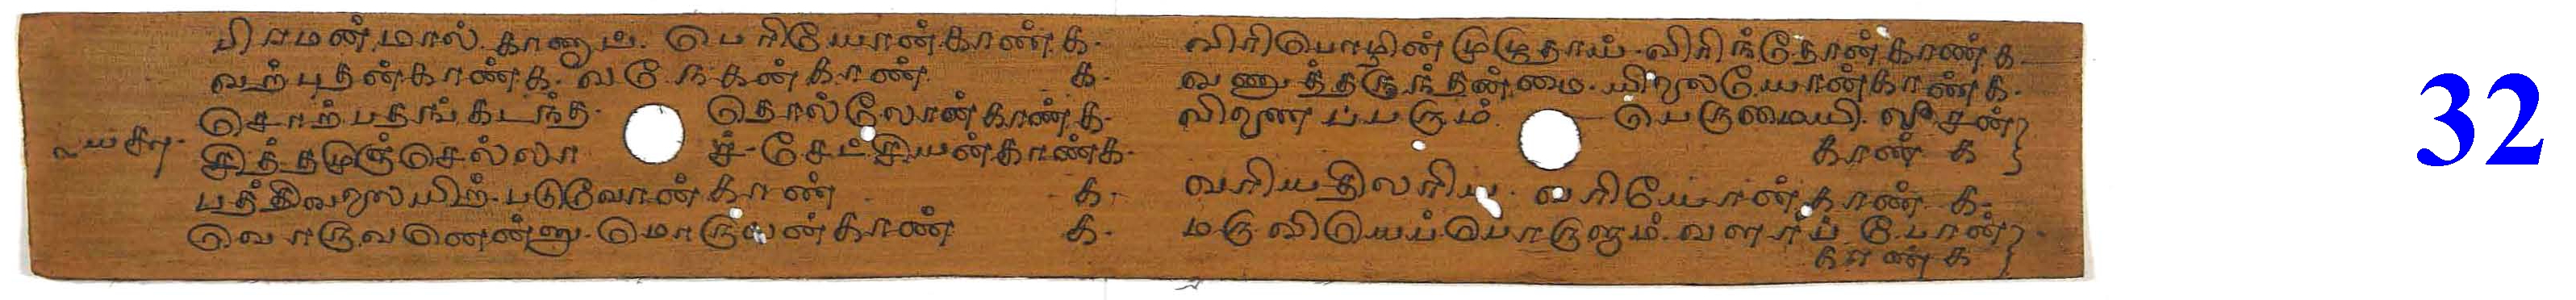 பிரமன்மால் காணாப் பெரியோன்காண்க
வற்புதன்காண்க வநேகன்காண்க
சொற்பதங்கடந்த தொல்லோன்காண்க
சித்தமுஞ்செல்லாச் சேட்சியன்காண்க
பத்திவலையிற் படுவோன்காண்க
வொருவனென்னு மொருவன்காண்க
விரிபொழின் முழுதாய் விரிந்தோன்காண்க
வணுத்தருந்தன்மை யிலையோன்காண்க
விணைப்பரும் பெருமையி லீசன்
காண்க
வரியதிலரிய வரியோன்காண்க
மருவியெப்பொருளும் வளர்ப்போன்
காண்க
32